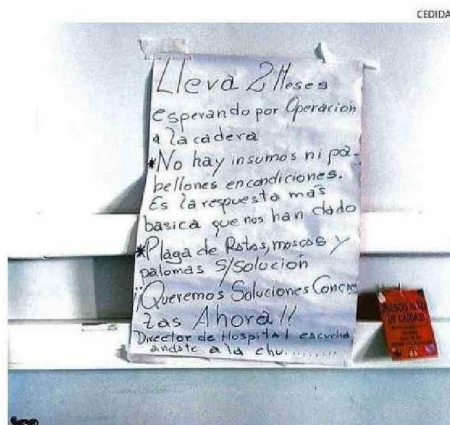 CEDIDA
Lleva 2 Meses
esperando por Operacion
a la cadera
*No hay insumos ni pa-
bellones en condiciones.
Es la respuesta mas
basica que nos han dado
*Plaga de Ratas, moscas y
palomas S/Solución
¡Queremos Soluciones Concre
tas Ahora!!
Director de Hospital escucha
andate a la chu.........